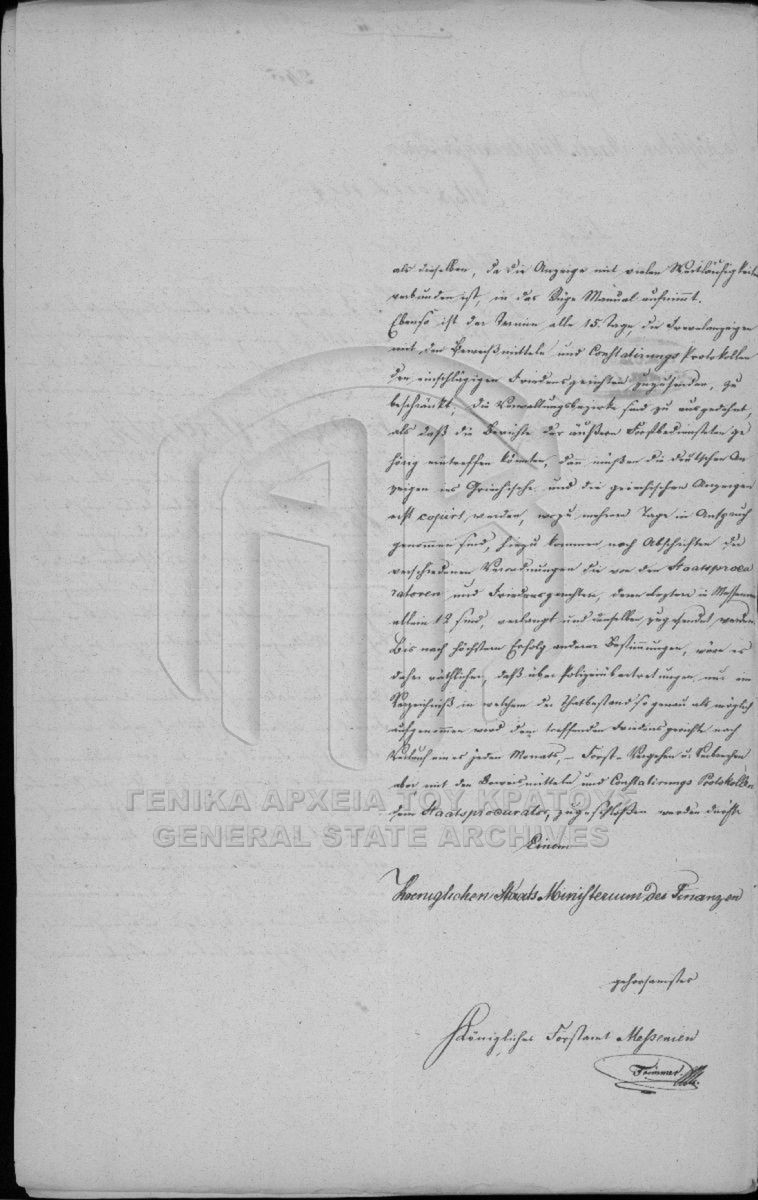 als dieselben, da die Anzeige mit vielen Weitläufigkeiten
verbunden ist, in das Rüge Manual aufnimmt.
Ebenso ist der Termin alle 15. Tage, die Frevelanzeigen
mit den Beweißmitteln und Constatirungs Protokollen
den einschlägigen Friedensgerichten zuzusenden, zu
beschränkt, die Verwaltungsbezirke sind zu ausgedehnt,
als daß die Berichte der äußern Forstbediensteten ge
hörig eintreffen könnten, dann müßen die deutschen An
zeigen ins Griechische und die griechischen Anzeigen
erst copirt werden, wozu mehrere Tage in Anspruch
genommen sind, hiezu kommen noch Abschriften der
verschiedenen Verordnungen die von den Staatsprocu
ratoren und Friedensgerichten, deren letztere in Messenien
allein 12 sind, verlangt und denselben zugesendet werden.
Bis nach höchstem Erfolg anderer Bestimmungen, wäre es
daher räthlicher, daß über Polizeiübertretungen nur ein
Verzeichniß in welchem der Thatbestand so genau als möglich
aufgenommen wird dem treffenden Friedensgerichte nach
Verlauf eines jeden Monats, – Forst-Vergehen u. Verbrechen
aber mit den Beweismitteln und Constatirungs Protokollen
dem Staatsprocurator, zugeschloßen werden dürfte
Einem
Koeniglichen Staats Ministerium der Finanzen
gehorsamstes
Königliches Forstamt Messenien
ΓΕΝΙΚΑ ΑΡΧΕΙΑ ΤΟΥ ΚΡΑΤΟΥΣ
GENERAL STATE ARCHIVES